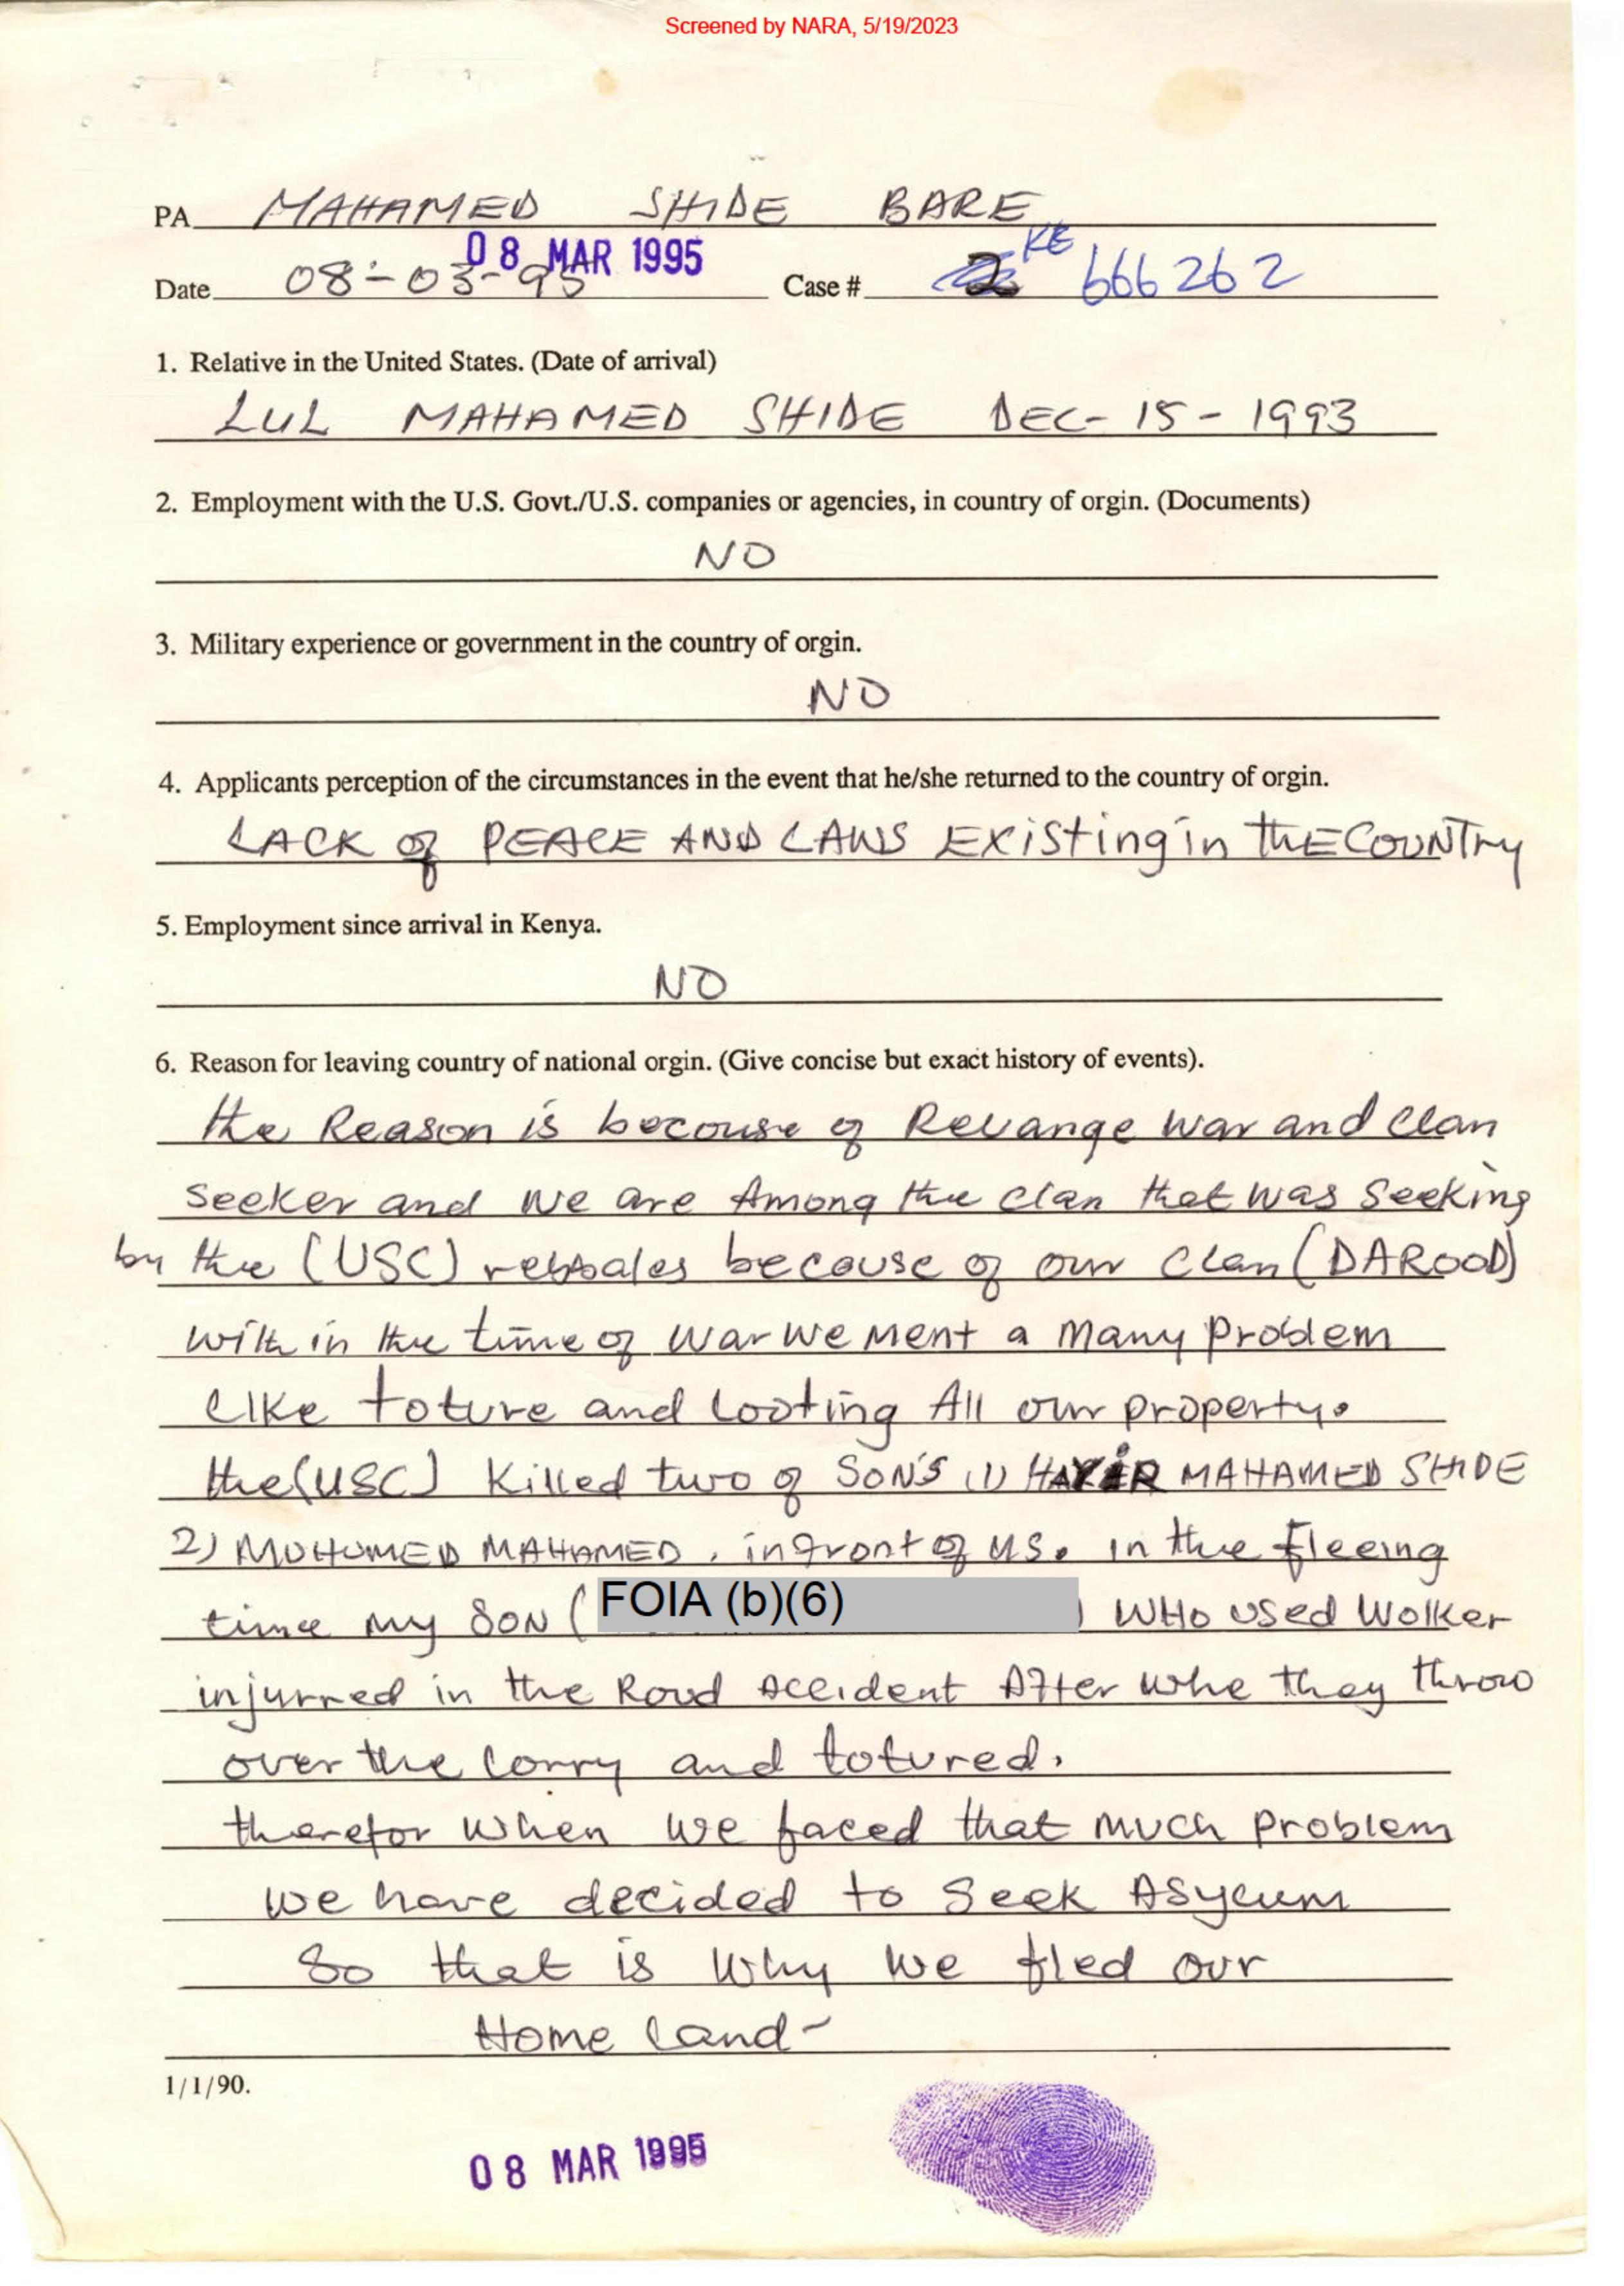 Screened by NARA, 5/19/2023
PA MAHAMED SHIDE BARE
08 MAR 1995
Date 08-03-95 Case # KE 666262
1. Relative in the United States. (Date of arrival)
LUL MAHAMED SHIDE DEC-15-1993
2. Employment with the U.S. Govt./U.S. companies or agencies, in country of orgin. (Documents)
NO
3. Military experience or government in the country of orgin.
NO
4. Applicants perception of the circumstances in the event that he/she returned to the country of orgin.
LACK of PEACE AND LAWS EXiSting in thE COUNTry
5. Employment since arrival in Kenya.
NO
6. Reason for leaving country of national orgin. (Give concise but exact history of events).
the Reason is becouse of Revange war and clan
seeker and we are Among the clan that was seeking
by the (USC) because of our clan (DAROOD)
with in the time of war we ment a many problem
like toture and looting All our property.
the (USC) killed two of SON'S (1) MAHAMED SHIDE
2) MOHUMED MAHAMED. infront of us. in the fleeing
time my SON ( FOIA (b)(6) ) WHO used wolker
injurred in the Road accident After whe they throw
over the lorry and totured.
therefor when we faced that much problem
we have decided to seek Asylum
So that is why we fled our
Home land-
1/1/90.
08 MAR 1995